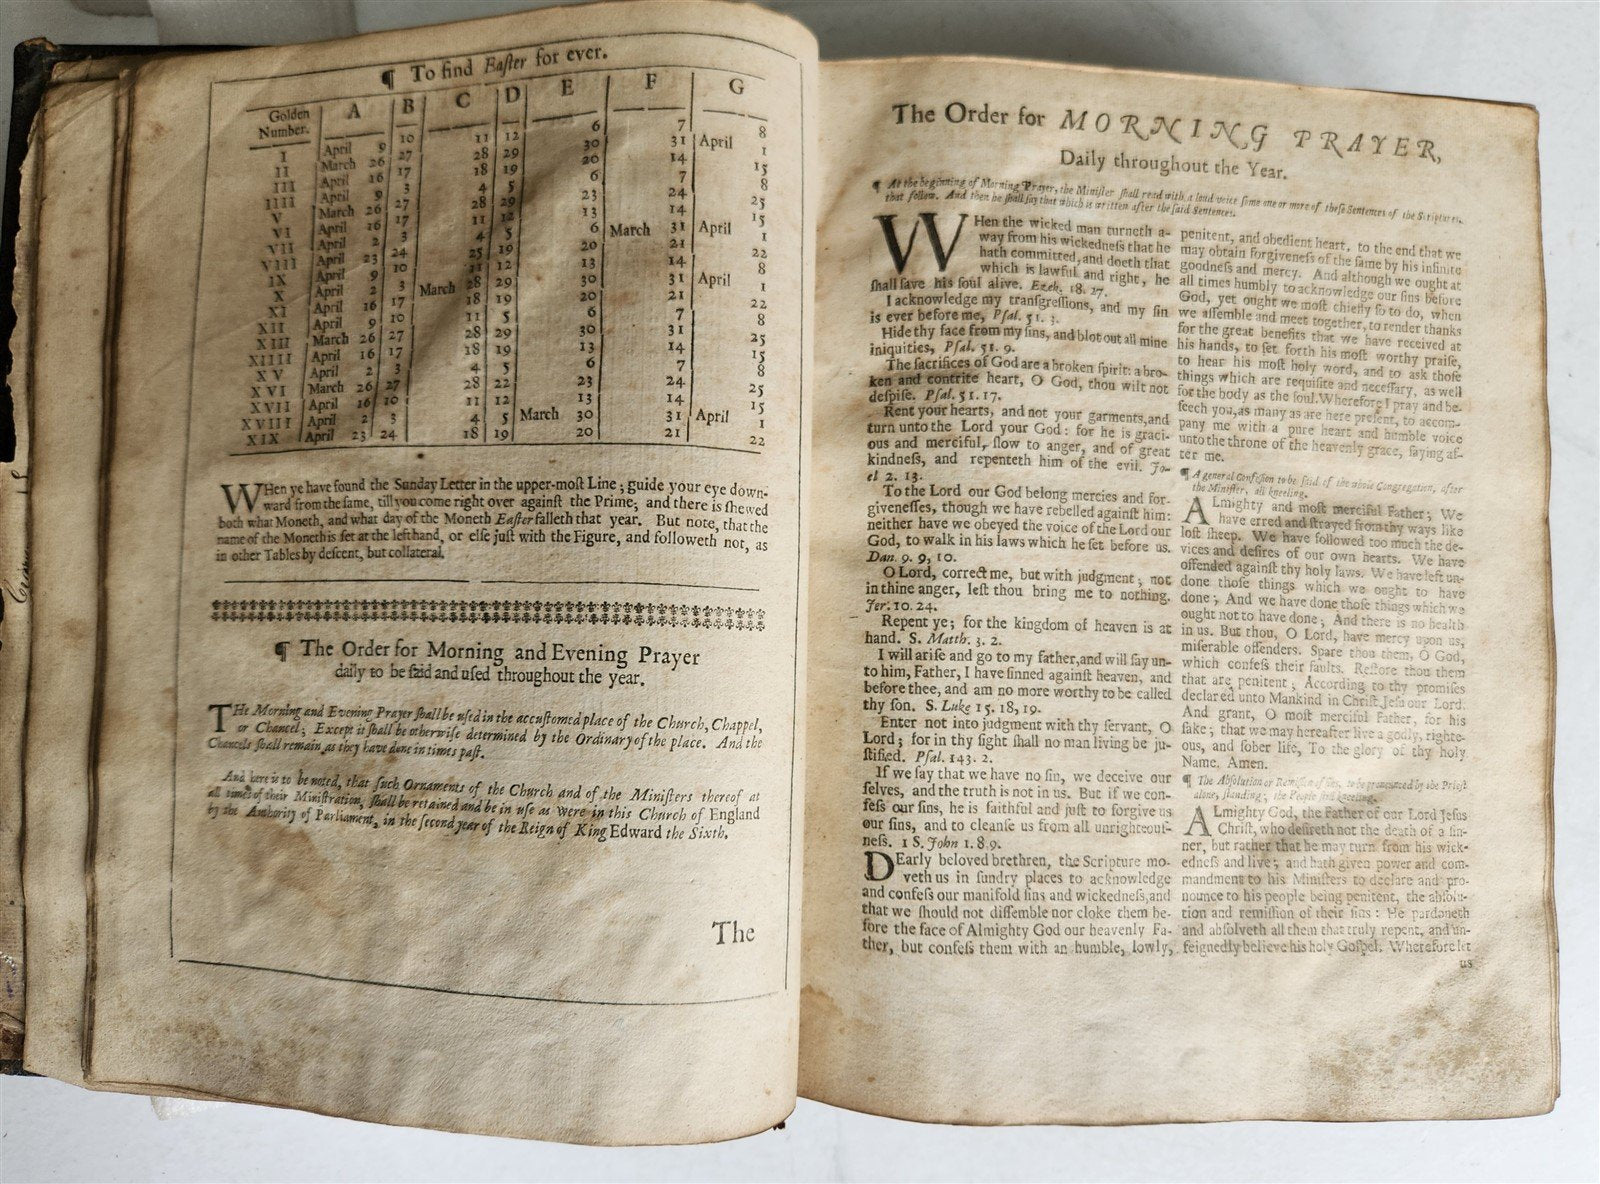 ¶ To find Easter for ever.
Golden Number. A B C D E F G
I April 9 10 11 12 6 7 April 8
II March 26 27 28 29 30 31 1
III April 16 17 18 19 20 14 15
IIII April 9 3 4 5 6 7 8
V March 26 27 28 29 23 24 25
VI April 16 17 11 12 13 14 15
VII April 2 3 4 5 6 March 31 April 1
VIII April 23 24 25 19 20 21 22
IX April 9 10 11 12 13 14 8
X April 2 3 March 28 29 30 31 April 1
XI April 16 17 18 19 20 21 22
XII April 9 10 11 5 6 7 8
XIII March 26 27 28 29 30 31 25
XIIII April 16 17 18 19 13 14 15
XV April 2 3 4 5 6 7 8
XVI March 26 27 28 22 23 24 25
XVII April 16 10 11 12 13 14 15
XVIII April 2 3 4 5 March 30 31 April 1
XIX April 23 24 18 19 20 21 22
WHen ye have found the Sunday Letter in the upper-moſt Line; guide your eye down-
ward from the ſame, till you come right over againſt the Prime; and there is ſhewed
both what Moneth, and what day of the Moneth Eaſter falleth that year. But note, that the
name of the Moneth is ſet at the left hand, or elſe juſt with the Figure, and followeth not, as
in other Tables by deſcent, but collateral.
¶ The Order for Morning and Evening Prayer
daily to be ſaid and uſed throughout the year.
THe Morning and Evening Prayer ſhall be uſed in the accuſtomed place of the Church, Chappel,
or Chancel; Except it ſhall be otherwiſe determined by the Ordinary of the place. And the
Chancels ſhall remain as they have done in times paſt.
And here is to be noted, that ſuch Ornaments of the Church and of the Miniſters thereof at
all times of their Miniſtration, ſhall be retained and be in uſe as were in this Church of England
by the Authority of Parliament, in the ſecond year of the Reign of King Edward the Sixth.
The
The Order for MORNING PRAYER,
Daily throughout the Year.
¶ At the beginning of Morning Prayer, the Miniſter ſhall read with a loud voice ſome one or more of theſe Sentences of the Scriptures,
that follow. And then he ſhall ſay that which is written after the ſaid Sentences.
WHen the wicked man turneth a-
way from his wickedneſs that he
hath committed, and doeth that
which is lawful and right, he
ſhall ſave his ſoul alive. Ezek. 18. 27.
I acknowledge my tranſgreſſions, and my ſin
is ever before me, Pſal. 51. 3.
Hide thy face from my ſins, and blot out all mine
iniquities, Pſal. 51. 9.
The ſacrifices of God are a broken ſpirit: a bro-
ken and contrite heart, O God, thou wilt not
deſpiſe. Pſal. 51. 17.
Rent your hearts, and not your garments, and
turn unto the Lord your God: for he is graci-
ous and merciful, ſlow to anger, and of great
kindneſs, and repenteth him of the evil. Jo-
el 2. 13.
To the Lord our God belong mercies and for-
giveneſſes, though we have rebelled againſt him:
neither have we obeyed the voice of the Lord our
God, to walk in his laws which he ſet before us.
Dan. 9. 9, 10.
O Lord, correct me, but with judgment; not
in thine anger, leſt thou bring me to nothing.
Jer. 10. 24.
Repent ye; for the kingdom of heaven is at
hand. S. Matth. 3. 2.
I will ariſe and go to my father, and will ſay un-
to him, Father, I have ſinned againſt heaven, and
before thee, and am no more worthy to be called
thy ſon. S. Luke 15. 18, 19.
Enter not into judgment with thy ſervant, O
Lord; for in thy ſight ſhall no man living be ju-
ſtified. Pſal. 143. 2.
If we ſay that we have no ſin, we deceive our
ſelves, and the truth is not in us. But if we con-
feſs our ſins, he is faithful and juſt to forgive us
our ſins, and to cleanſe us from all unrighteouſ-
neſs. 1 S. John 1. 8. 9.
DEarly beloved brethren, the Scripture mo-
veth us in ſundry places to acknowledge
and confeſs our manifold ſins and wickedneſs, and
that we ſhould not diſſemble nor cloke them be-
fore the face of Almighty God our heavenly Fa-
ther, but confeſs them with an humble, lowly,
penitent, and obedient heart, to the end that we
may obtain forgiveneſs of the ſame by his infinite
goodneſs and mercy. And although we ought at
all times humbly to acknowledge our ſins before
God, yet ought we moſt chiefly ſo to do, when
we aſſemble and meet together, to render thanks
for the great benefits that we have received at
his hands, to ſet forth his moſt worthy praiſe,
to hear his moſt holy word, and to ask thoſe
things which are requiſite and neceſſary, as well
for the body as the ſoul. Wherefore I pray and be-
ſeech you, as many as are here preſent, to accom-
pany me with a pure heart and humble voice
unto the throne of the heavenly grace, ſaying af-
ter me.
¶ A general Confeſſion to be ſaid of the whole Congregation, after
the Miniſter, all kneeling.
ALmighty and moſt merciful Father; We
have erred and ſtrayed from thy ways like
loſt ſheep. We have followed too much the de-
vices and deſires of our own hearts. We have
offended againſt thy holy laws. We have left un-
done thoſe things which we ought to have
done; And we have done thoſe things which we
ought not to have done; And there is no health
in us. But thou, O Lord, have mercy upon us,
miſerable offenders. Spare thou them, O God,
which confeſs their faults. Reſtore thou them
that are penitent; According to thy promiſes
declared unto Mankind in Chriſt Jeſu our Lord.
And grant, O moſt merciful Father, for his
ſake; that we may hereafter live a godly, righte-
ous, and ſober life, To the glory of thy holy
Name. Amen.
¶ The Abſolution or Remiſſion of ſins, to be pronounced by the Prieſt
alone, ſtanding; the People ſtill kneeling.
ALmighty God, the Father of our Lord Jeſus
Chriſt, who deſireth not the death of a ſin-
ner, but rather that he may turn from his wick-
edneſs and live; and hath given power and com-
mandment to his Miniſters to declare and pro-
nounce to his people being penitent, the abſolu-
tion and remiſſion of their ſins: He pardoneth
and abſolveth all them that truly repent, and un-
feignedly believe his holy Goſpel. Wherefore let
us